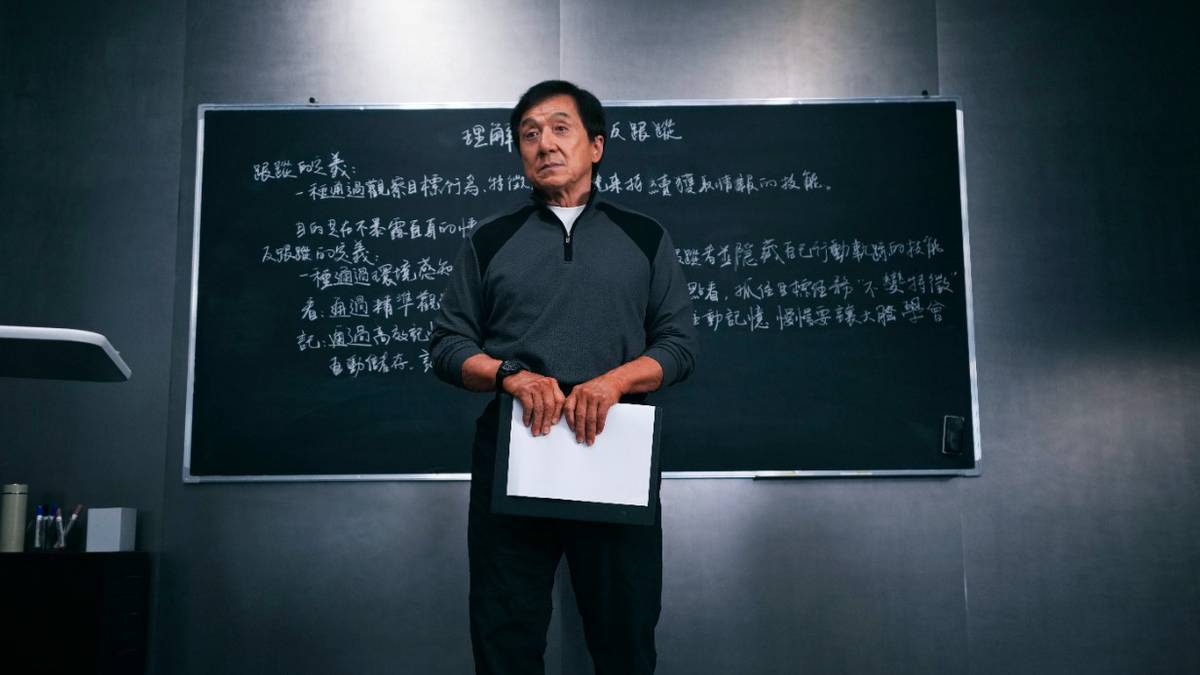 理解 反跟蹤
跟蹤的定義:
一種通過觀察目標行為、特徵 來持續獲取情報的技能。
目的是在不暴露自真的情
反跟蹤的定義:
一種通過環境感知 跟蹤者並隱藏自己行動軌跡的技能
看:通過精準觀 點看,抓住目標任務"不變特徵"
記:通過高效記 主動記憶 慢慢要讓大腦學會
自動儲存、